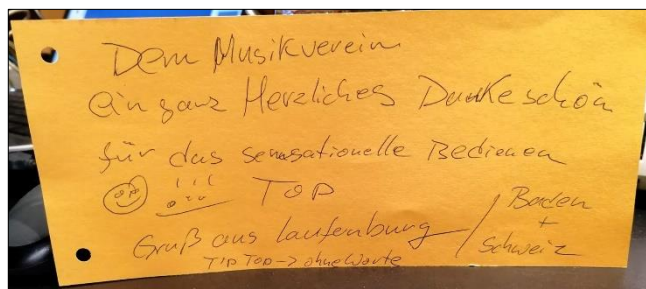 Dem Musikverein
ein ganz Herzliches Dankeschön
für das sensationelle Bedienen
!!! TOP
Gruß aus Laufenburg / Baden + Schweiz
TIP TOP -> ohne Worte